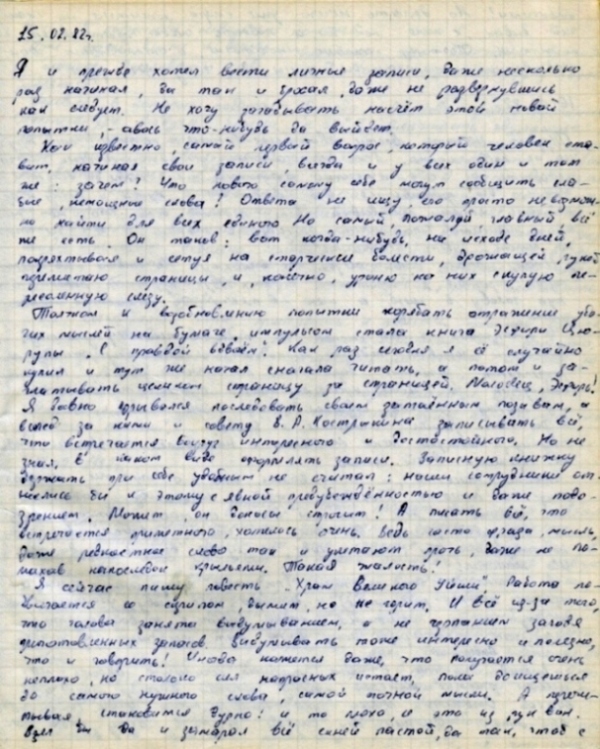 15.02.82г.
Я и прежде хотел вести личные записи, даже несколько
раз начинал, да так и бросал, даже не развернувшись
как следует. Не хочу загадывать насчёт этой новой
попытки, – авось что-нибудь да выйдет.
Как известно, самый первый вопрос, который человек ста-
вит, начиная свои записи, всегда и у всех один и тот
же: зачем? Что нового самому себе могут сообщить сла-
бые, немощные слова? Ответа не ищу, его просто невозмож-
но найти для всех единого. Но самый, пожалуй, главный всё
же есть. Он таков: вот когда-нибудь, на исходе дней,
покряхтывая и сетуя на старческие болести, дрожащей рукой
перелистаю страницы, и, конечно, уроню на них скупую не-
слезу.
Толчком к возобновлению попытки корябать отражение убо-
гих мыслей на бумаге, импульсом стала книга
"С правдой вдвоём". Как раз сегодня я её случайно
купил и тут же начал сначала читать, а потом и за-
глатывать целиком страницу за страницей. Молодец,
Я давно порывался последовать своим затаённым позывам, а
вслед за ними и совету В. А. Кострикина записывать всё,
что встречается вокруг интересного и достойного. Но не
знал, в каком виде оформлять записи. Записную книжку
держать при себе удобным не считал: наши сотрудники от-
неслись бы к этому с явной предубеждённостью и даже подо-
зрением. Может, он доносы строчит! А писать всё, что
встречается приметного, хотелось очень. Ведь часто фраза, мысль,
даже редкостное слово так и улетают прочь, даже не по-
махав напоследок крыльями. Такая жалость!
Я сейчас пишу повесть "Храм Великого Уйми". Работа по-
двигается со скрипом, дымит, но не горит. И всё из-за того,
что голова занята выдумыванием, а не черпанием загодя
приготовленных запасов. Выдумывать тоже интересно и полезно,
что и говорить! Иногда кажется даже, что получается очень
неплохо, но столько сил напрасных истает, пока доищешься
до самого нужного слова, самой точной мысли. А перечи-
тывая, становится дурно: и то плохо, и это из рук вон.
Взял бы да и замарал всё синей пастой, да так, чтоб с